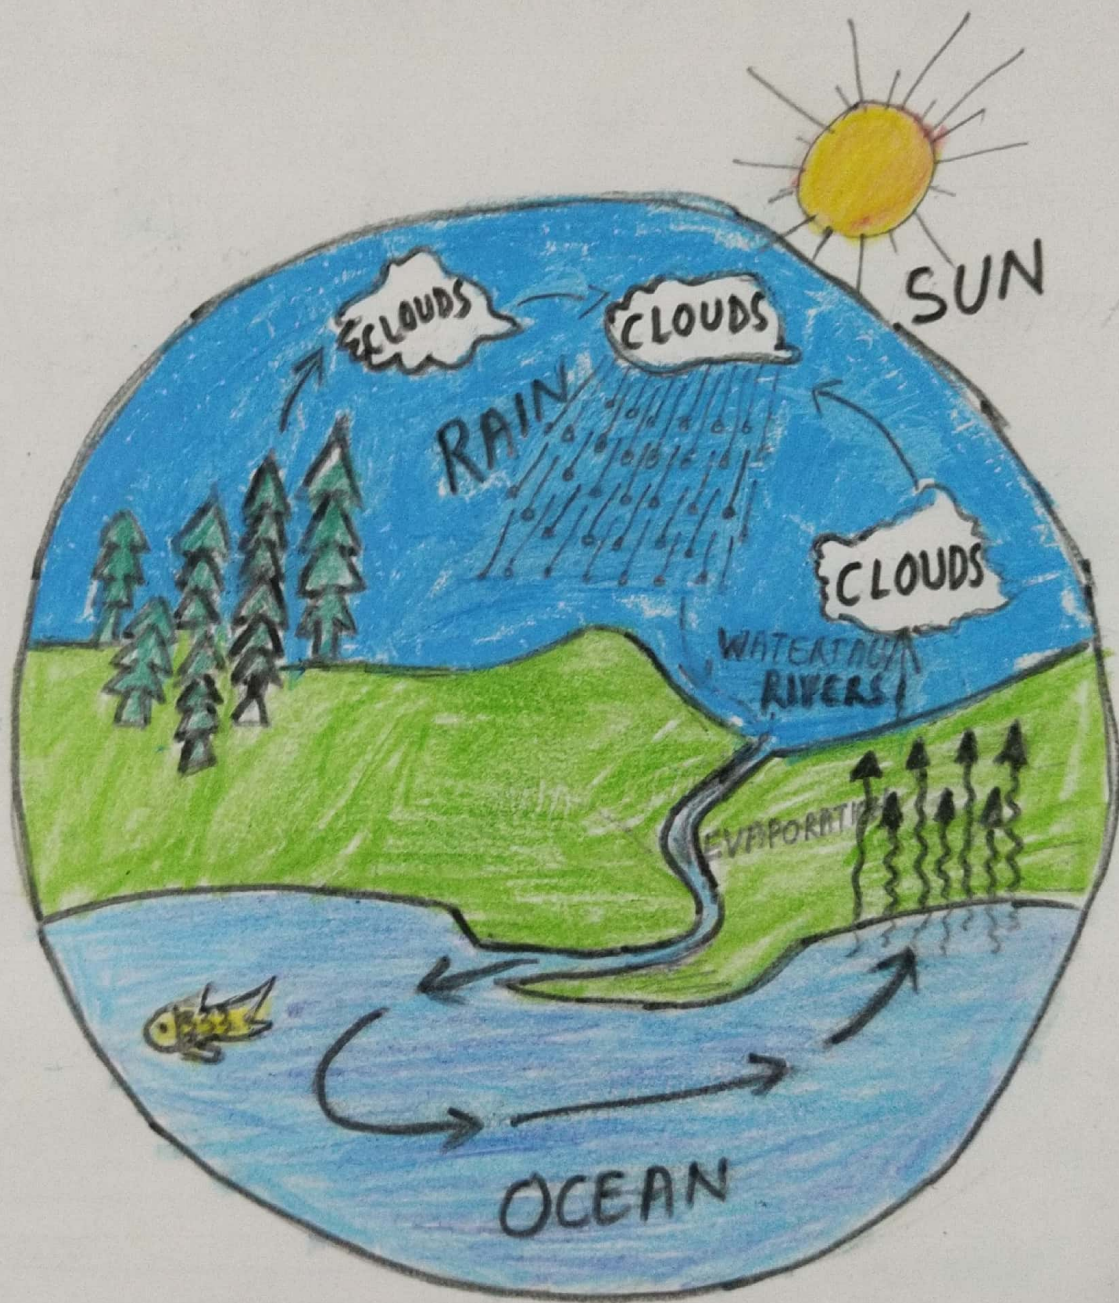 SUN
CLOUDS
CLOUDS
RAIN
CLOUDS
RIVERS
EVAPORATI
OCEAN